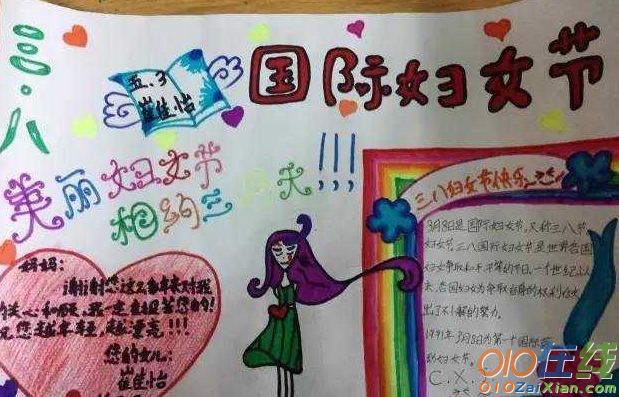 三·八
五.3
崔佳怡
国际妇女节
美丽妇女节
相约三月天!!!
妈妈：
谢谢您这么多年来对我
的关心和
您越来越年轻,越漂亮!!!
您的女儿：
崔佳怡
三八妇女节快乐
3月8日是国际妇女节,又称三八节
妇女节。三八国际妇女节是世界各国
妇女争取和平、平等的节日。一个世纪以
来,各国妇女为争取自身的权利
出了不懈的努力。
1991年3月8日为第一个国际劳
动妇女节。
C.X.
010在线
010ZaiXian.com